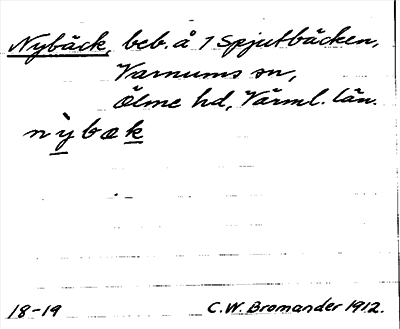 Nybäck, beb. å 1 Spjutbäcken,
Varnums sn,
Ölme hd, Värml. län.
nỳbæk
18-19 C.W. Bromander 1912.